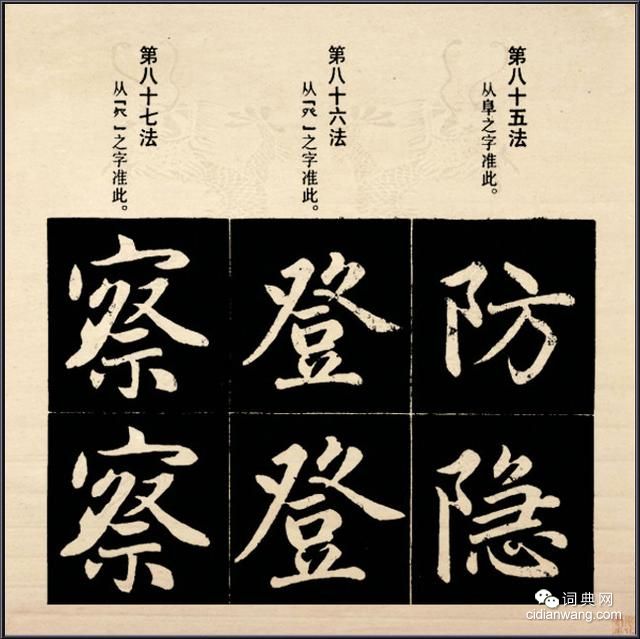 第八十五法
从阜之字准此。
第八十六法
从「癶」之字准此。
第八十七法
从「癶」之字准此。
防
隐
登
登
察
察
词典网
cidianwang.com